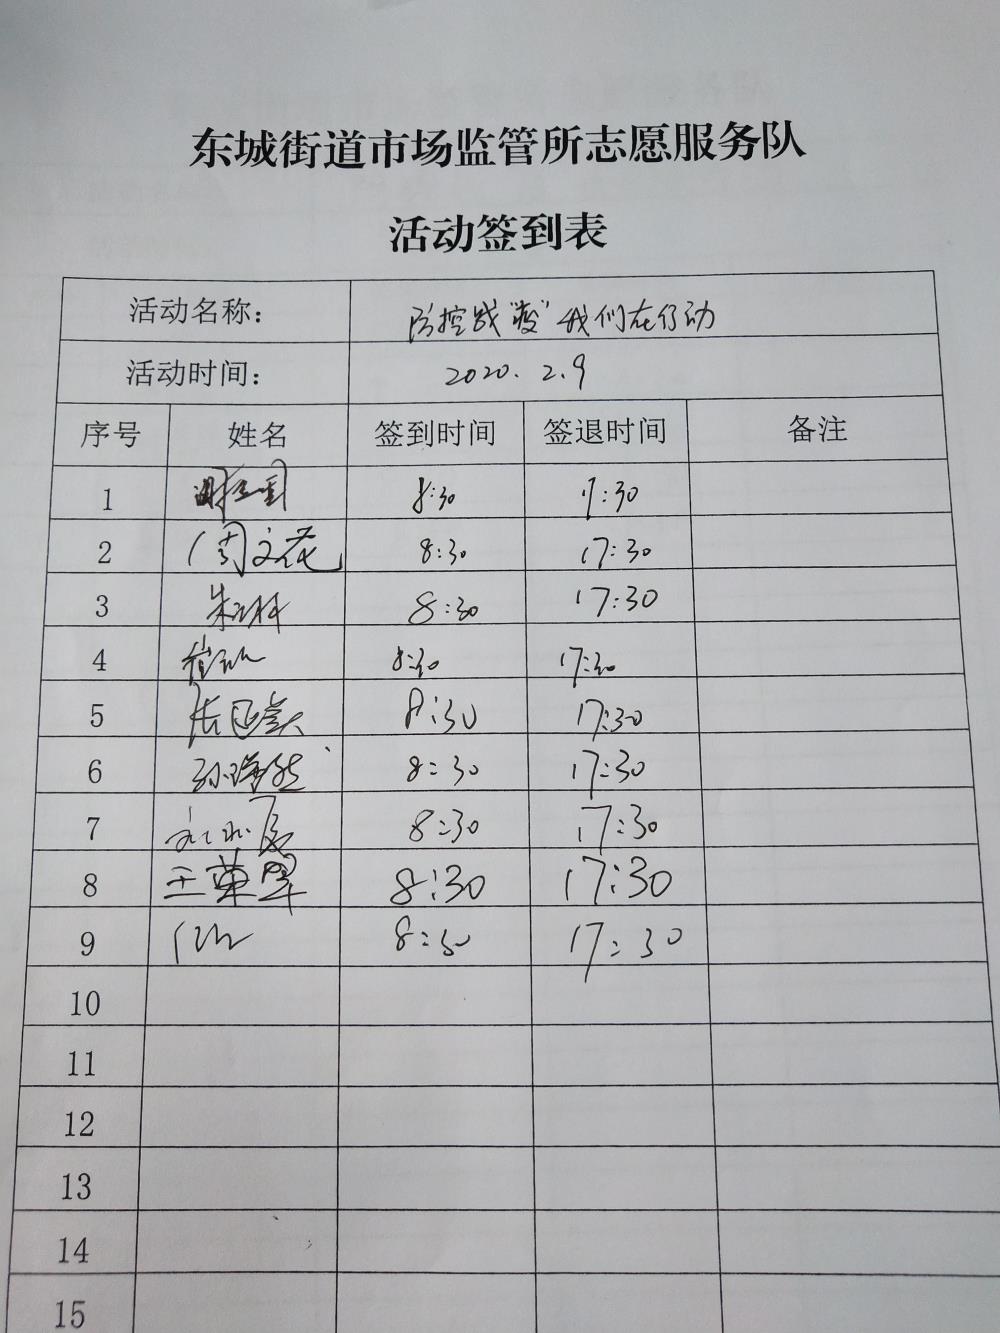 东城街道市场监管所志愿服务队
活动签到表
活动名称： 防控战"疫" 我们在行动
活动时间： 2020.2.9
序号 姓名 签到时间 签退时间 备注
1 8:30 17:30
2 周文花 8:30 17:30
3 8:30 17:30
4 8:30 17:30
5 8:30 17:30
6 8:30 17:30
7 8:30 17:30
8 王翠 8:30 17:30
9 8:30 17:30
10
11
12
13
14
15